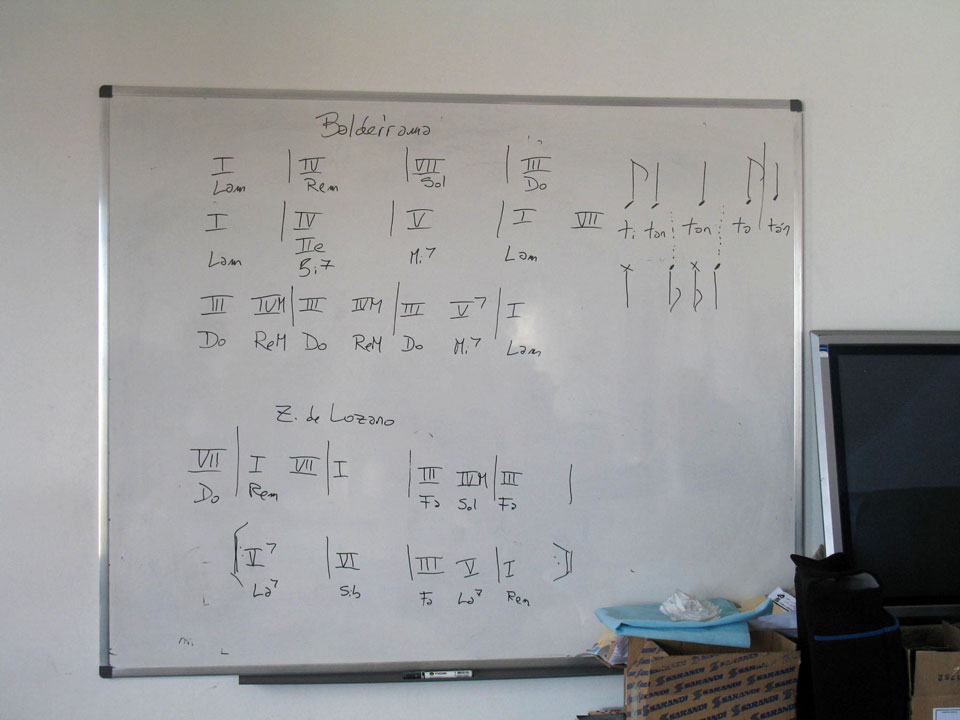 Balderrama
I | IV | VII | III
Lam Rem Sol Do
I | IV | V | I VII
IIe
Lam Si7 Mi7 Lam
ti tan tan ta tán
III IVM | III IVM | III V7 | I
Do ReM Do ReM Do Mi7 Lam
Z. de Lozano
VII | I VII | I | III IVM | III |
Do Rem Fa Sol Fa
V7 | VI | III V | I
La7 Sib Fa La7 Rem
SARANDI SARANDI SARANDI